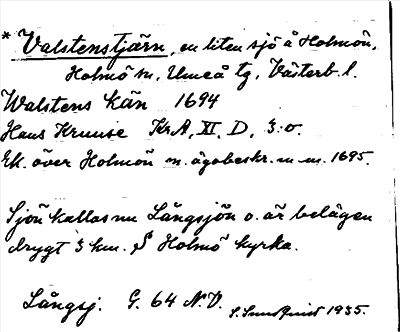 * Valstenstjärn, en liten sjö å Holmön,
Holmö sn, Umeå tg, Västerb. l.
Walstens kän 1694
Hans Kruuse KrA, XI, D, 3:o.
Ek. över Holmön m. ägobeskr. m m. 1695.
Sjön kallas nu Långsjön o. är belägen
drygt 3 km. S Holmö kyrka.
Långsj. G. 64 N.V. S. Sundquist 1935.